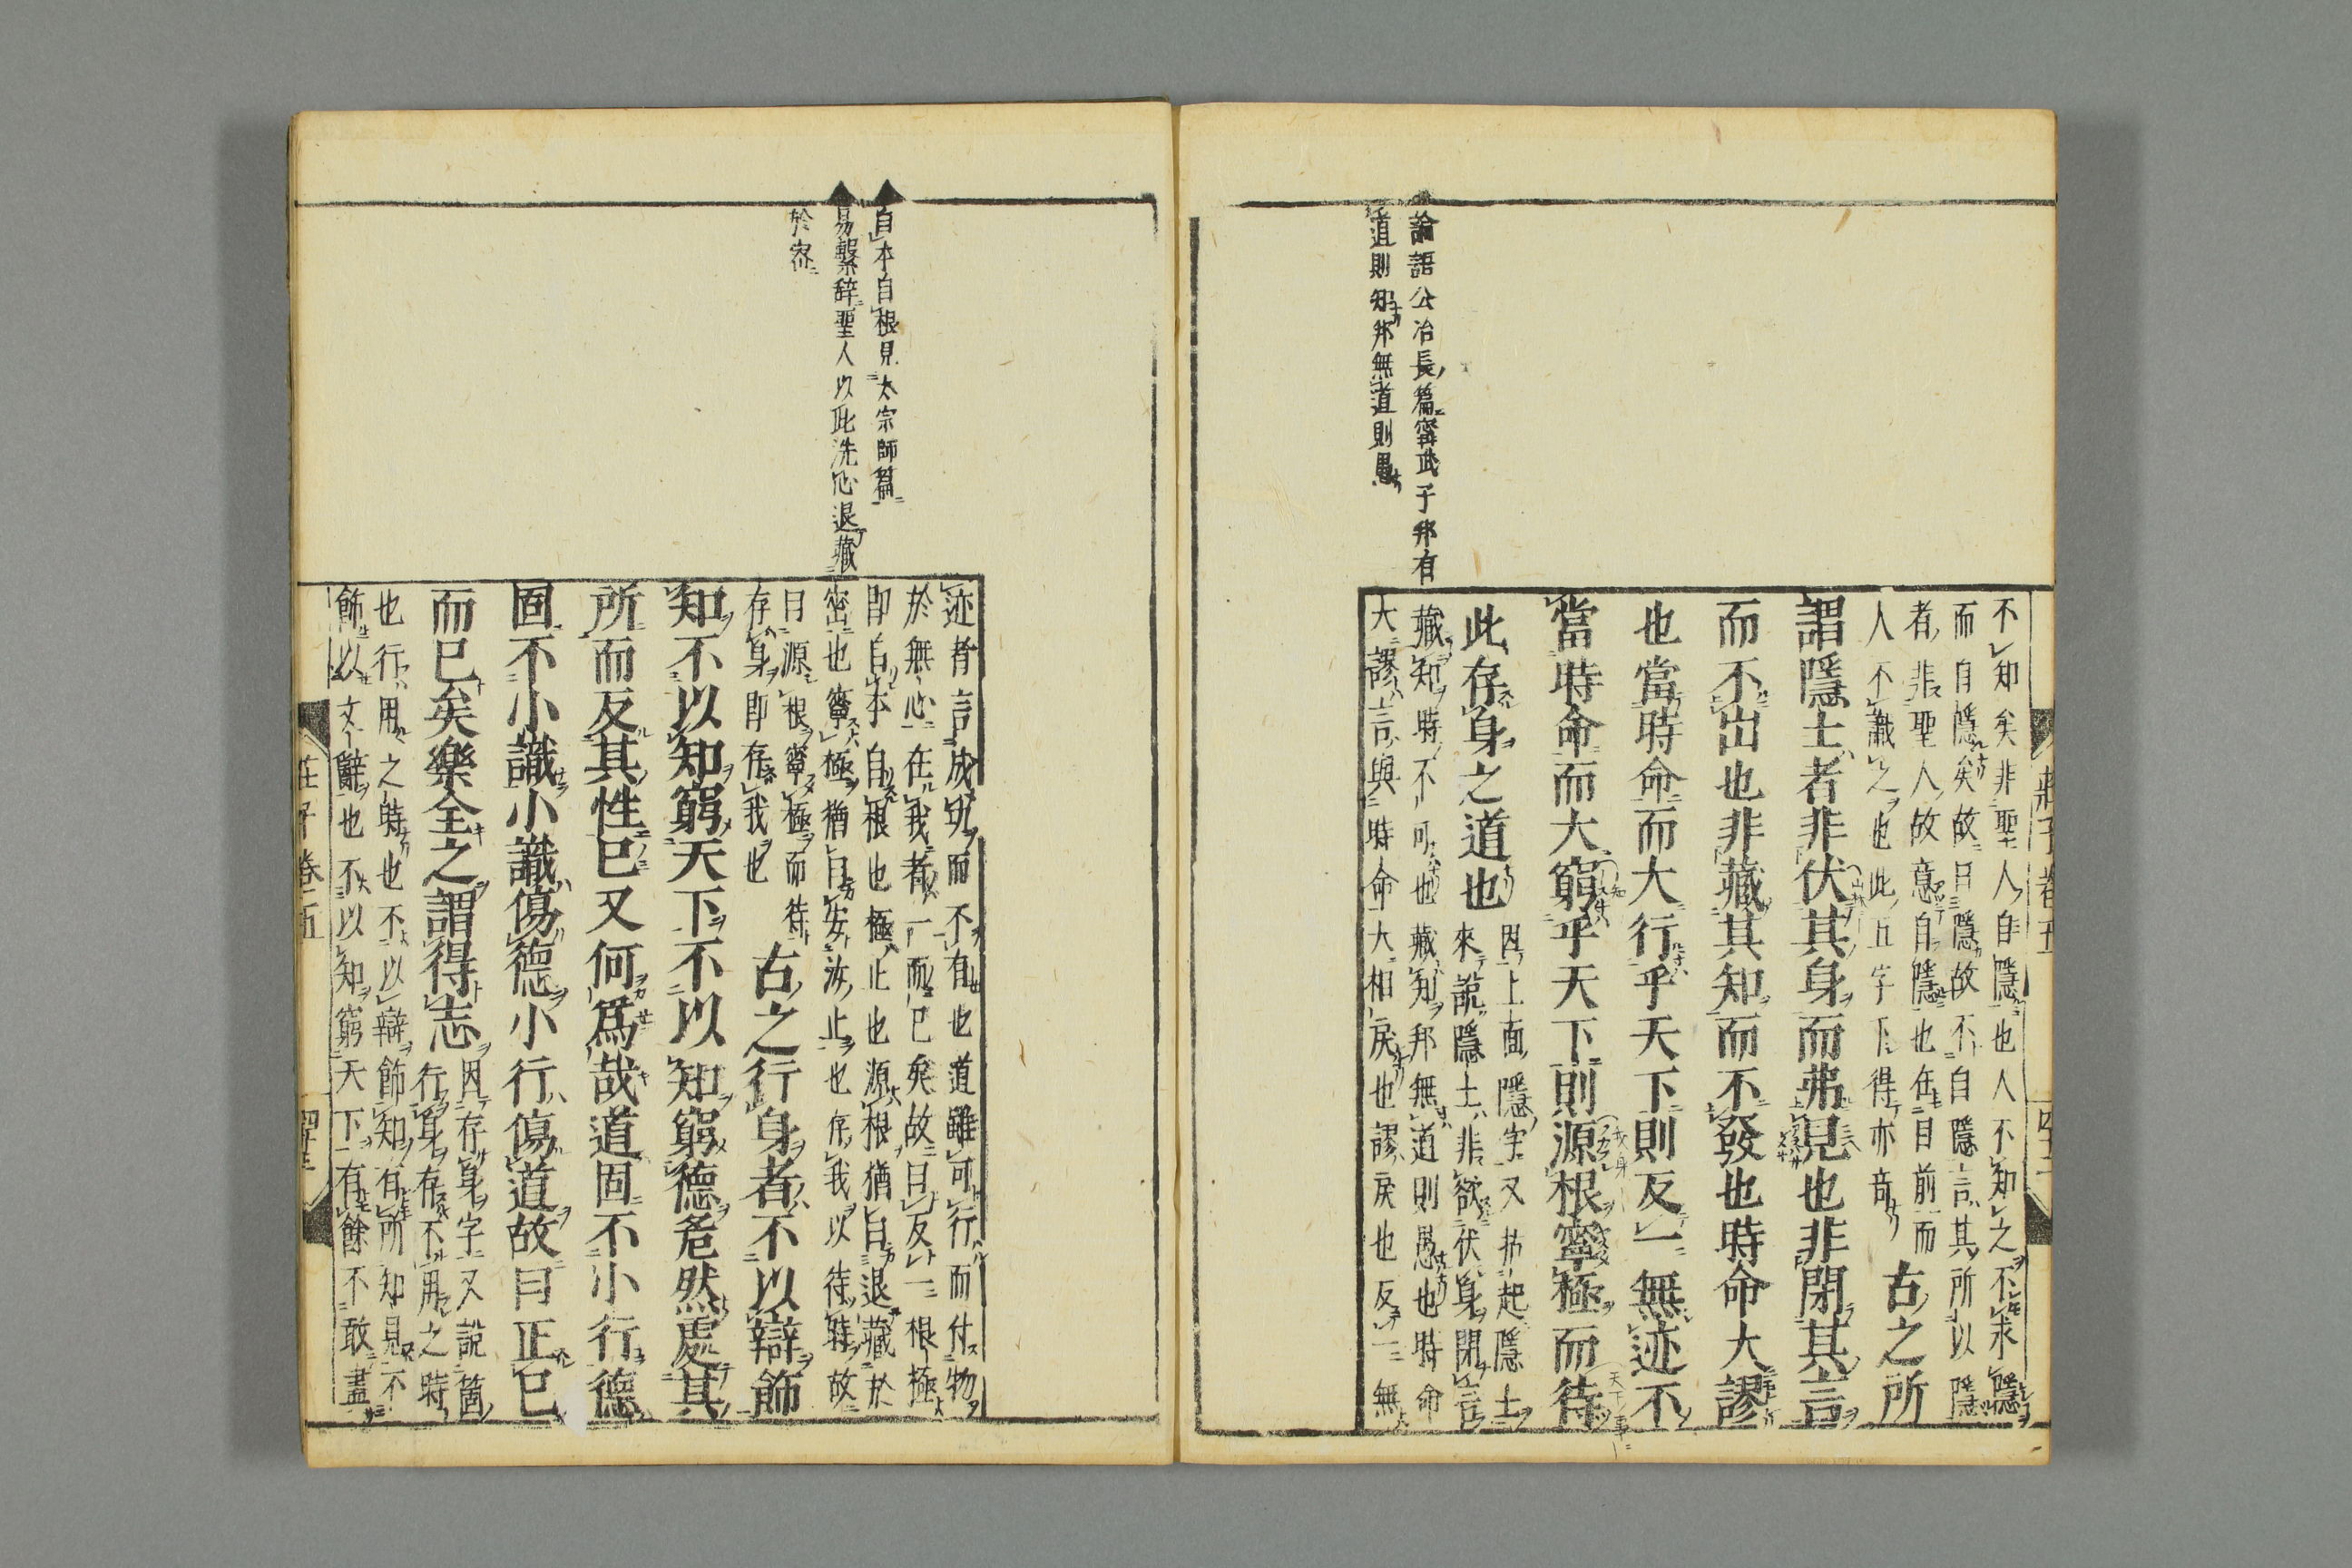 論語公冶長篇寗武子邦有
道則知邦無道則愚
莊子卷五
不知矣非聖人自隱也人不知之不求隱
而自隱矣故曰隱故不自隱言其所以隱
者非聖人故意自隱也在目前而
人不識之也此五字下得亦奇
古之所
謂隱士者非伏其身而弗見也非閉其言
而不出也非藏其知而不發也時命大謬
也當時命而大行乎天下則反一無迹不
當時命而大窮乎天下則源根寧極而待
此存身之道也
因上面隱字又抅起隱士
來說隱士非欲伏身閉言
藏知時不可也藏知邦無道則愚也時命
大謬言與時命大相戾也謬戾也反一無
自本自根見太宗師篇
易繫辭聖人以此洗心退藏
於密
迹者言成功而不有也道雖可行而付物
於無心在我者一而已矣故曰反一根極
即自本自根也極止也源根猶曰退藏於
密也寧極猶曰安汝止也存我以待時故
曰源根寧極而待
存身即存我也
古之行身者不以辯飾
知不以知窮天下不以知窮德危然處其
所而反其性已又何爲哉道固不小行德
固不小識小識傷德小行傷道故曰正已
而已矣樂全之謂得志
因存身字又說箇
行身存不用之時
也行用之時也不以辯飾知有所知見不
飾以文辭也不以知窮天下有餘不敢盡
莊子卷五